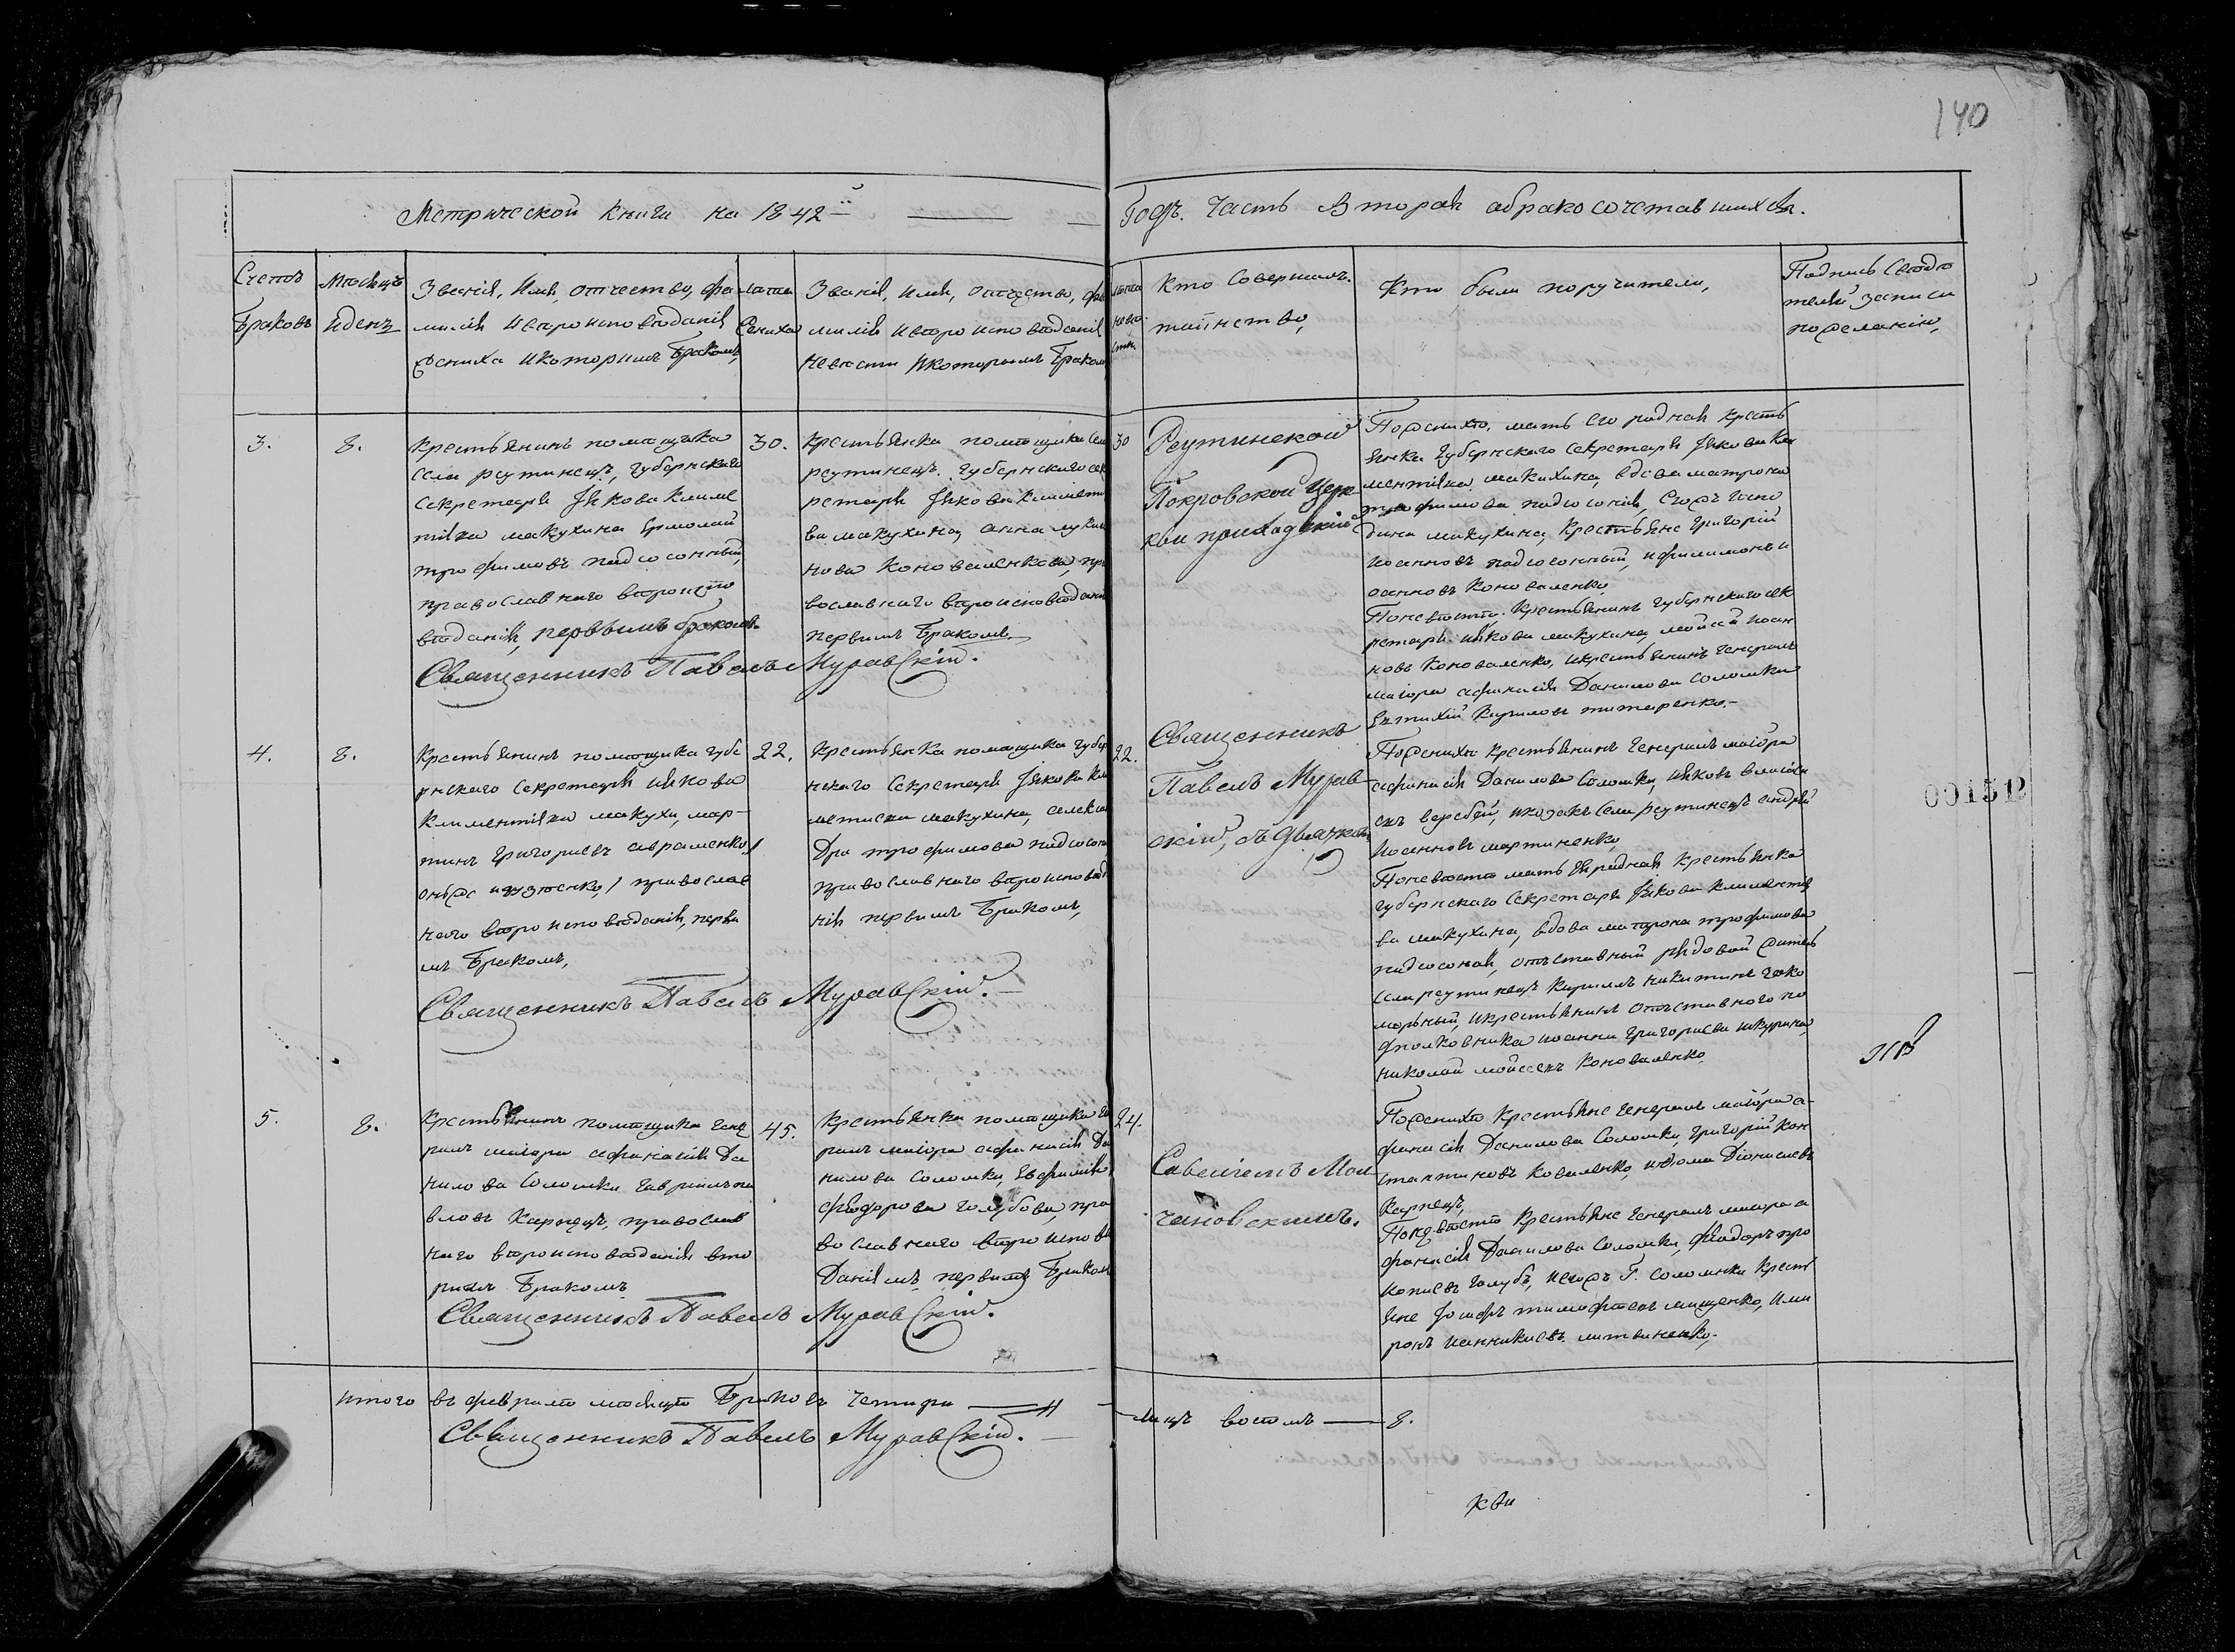 140
Метрической книги на 1842й
Годъ. Часть вторая обракосочетавшихся.
Счетъ
браковъ
Месяцъ
и день
Звания, имя, отчество, фа
милия и вероисповедания
жениха и которымъ бракомъ,
лета
жениха
Звания, имя, отчество, фа
милия и вероисповедания
невести и которымъ бракомъ
лета
неве
сти.
Кто совершалъ
таинство,
Кто были поручители,
Подпись свиде
телей записи
по желанию,
3.
8.
Крестьянинъ помещика
села реутинецъ, губернскаго
Секретаря Якова Климе
тиева макухина Ермолай
трофимовъ подсосонный,
православнаго вероиспо
ведания, первымъ бракомъ.
30.
Крестьянка помещика села
реутинецъ губернскаго сек
ретаря Якова климети
ва макухина, анна лукия
нова Коноваленкова, пра
вославнаго вероисповедания
первимъ бракомъ.
30
Священникъ Павелъ Муравский.
Реутинской
Покровской Церк
кви приходский
Священникъ
Павелъ Мурав
ский, съ дьячкомъ
Савелиемъ Мол
чановскимъ.
По женихе. мать его родная кресть
янка губернскаго секретаря Якова Кли
ментиева макухина, вдова матрона
трофимова подсосоная, Егожъ госпо
дина макухина, Крестьяне григорий
иоанновъ подсосонный, и филимонъ и
оанновъ Коноваленко,
По невесте. Крестьянинъ губернскаго сек
ретаря якова макухина моисей иоан
новъ Коноваленко, и крестьянинъ генералъ
маиора афанасия Данилова соломки
Евтихий Кириловъ титаренко.
4.
8.
Крестьянинъ помещика губе
рнскаго секретаря якова
климентиева макухи, мар-
тинъ григориевъ авраменко /
онъже изузенко / православ
наго вероисповедания, перви
мъ бракомъ,
22.
Крестьянка помещика губер
нскаго секретаря Якова кли
метиева макухина, алексан
Дра трофимова подсосон
православнаго вероисповеда
ния первимъ бракомъ,
22.
Священникъ Павелъ Муравский.
По женихе крестьянинъ генералъ маиора
афанасия Данилова Соломки, яковъ
евъ веребей, и козакъ села реутинецъ андрей
иоанновъ мартиненко,
По невесте мать ея родная, крестьянка
губернскаго секретаря Якова климентие
ва макухина, вдова матрона трофимова
подсосоная, отъставный рядовой жител
села реутинецъ Кирилъ никитинъ
морный, и крестьянинъ отъставного по
дполковника иоанна григориева шкурина,
николай моисеевъ Коноваленко.
5.
8.
Крестьянинъ помещика гене
ралъ маиора афанасия Да
нилова Соломки гаврийлъ па
вловъ Карпецъ, православ
наго вероисповедания вто
римъ бракомъ
45.
Крестьянка помещика ге
ралъ маиора афанасия Да
нилова Соломки, Евфимия
феодорова голубова, пра
вославнаго вероисповe
даниямъ первимъ бракомъ
24.
Священникъ Павелъ Муравский.
По женихе крестьяне генералъ маиора а-
фанасия Данилова Соломки, григорий Кон
стантиновъ Коваленко, и фома Дионисиевъ
Карпецъ,
По невесте крестьяне генералъ маиора а
фанасия Данилова Соломки, феодоръ про
копиевъ голубъ, и егожъ Г. соломки крест
яне Иосифъ тимофеевъ мищенко, и ми
ронъ иоанникиевъ литвиненко.
00151
итого въ феврале месяце браковъ четири — 4
Лицъ восемъ — 8.
Священникъ Павелъ Муравский.